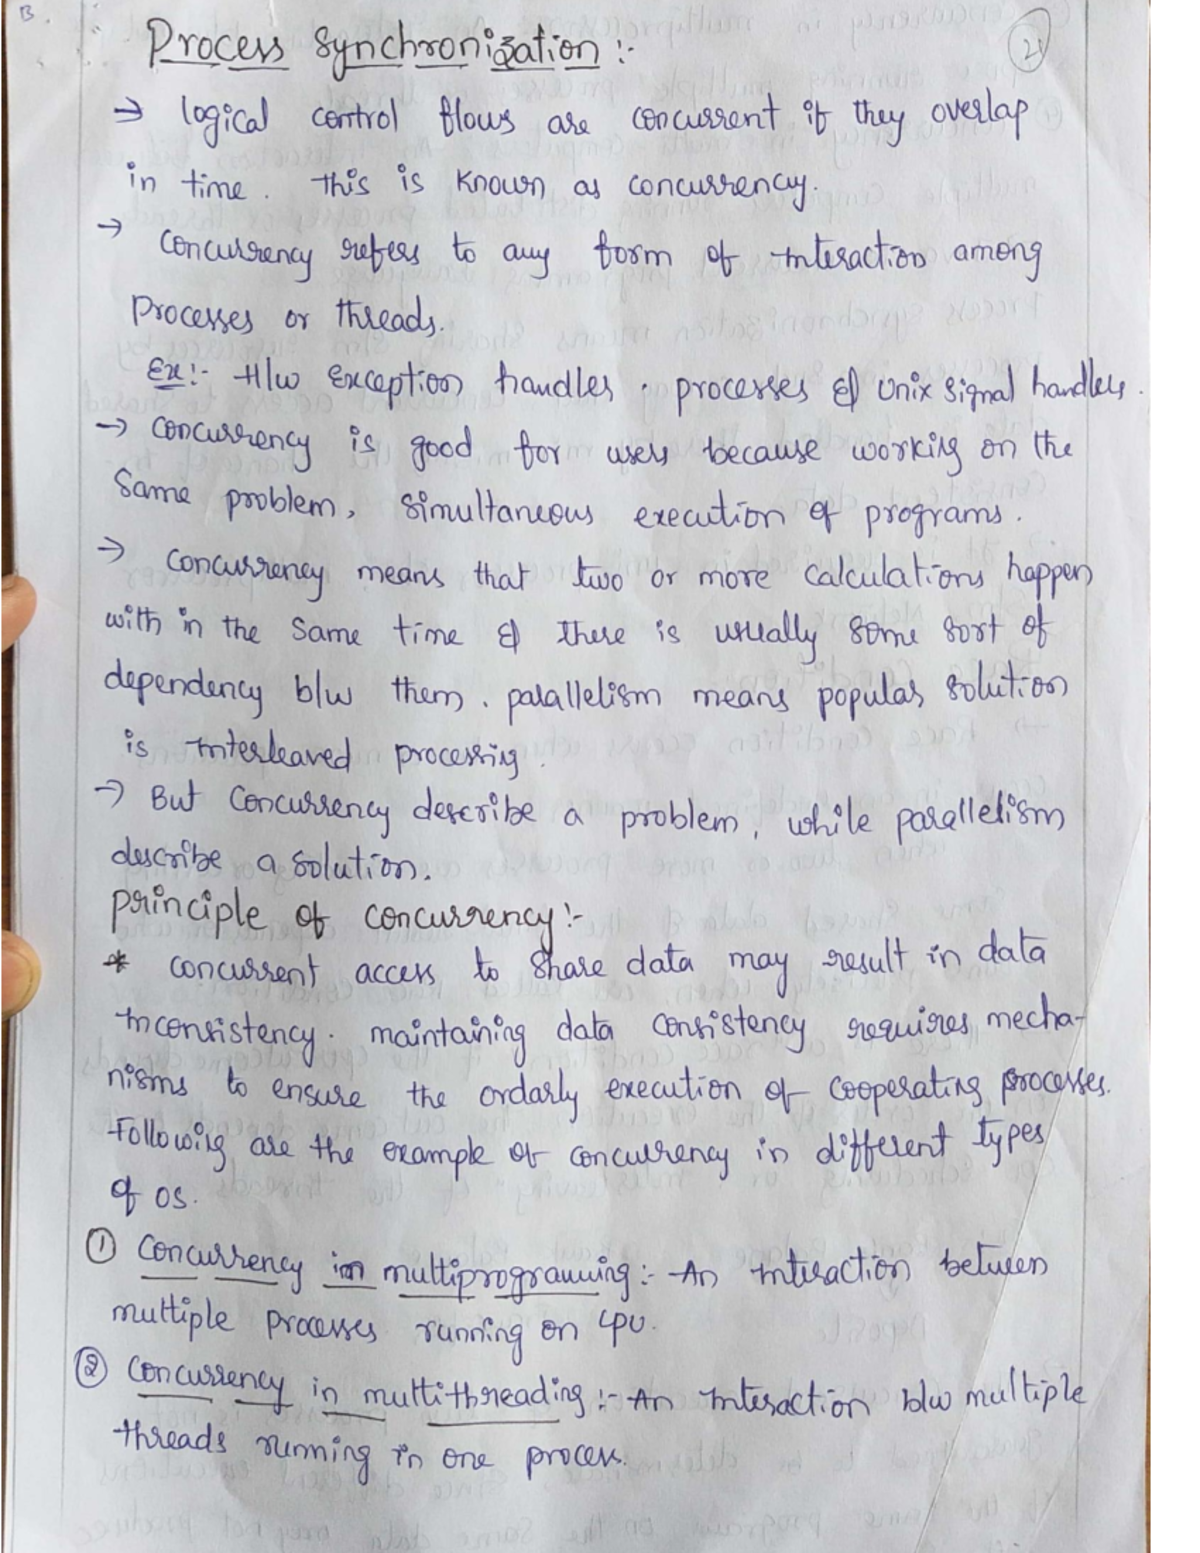 B.
21
Process Synchronization :-
→ logical control flows are concurrent if they overlap
in time. This is known as concurrency.
→ concurrency refers to any form of interaction among
Processes or threads.
Ex:- H/w Exception handles, processes & Unix signal handlers.
→ Concurrency is good for users because working on the
Same problem, simultaneous execution of programs.
→ Concurrency means that two or more calculations happen
with in the same time & there is usually some sort of
dependency b/w them. parallelism means popular solution
is interleaved processing.
→ But Concurrency describe a problem, while parallelism
describe a solution.
Principle of concurrency:-
* concurrent access to share data may result in data
inconsistency. maintaining data consistency requires mecha-
nisms to ensure the ordarly execution of cooperating processes.
Following are the example of concurrency in different types
of OS.
① Concurrency in multiprogramming:- An interaction between
multiple processes running on CPU.
② Concurrency in multithreading :- An interaction b/w multiple
threads running in one process.